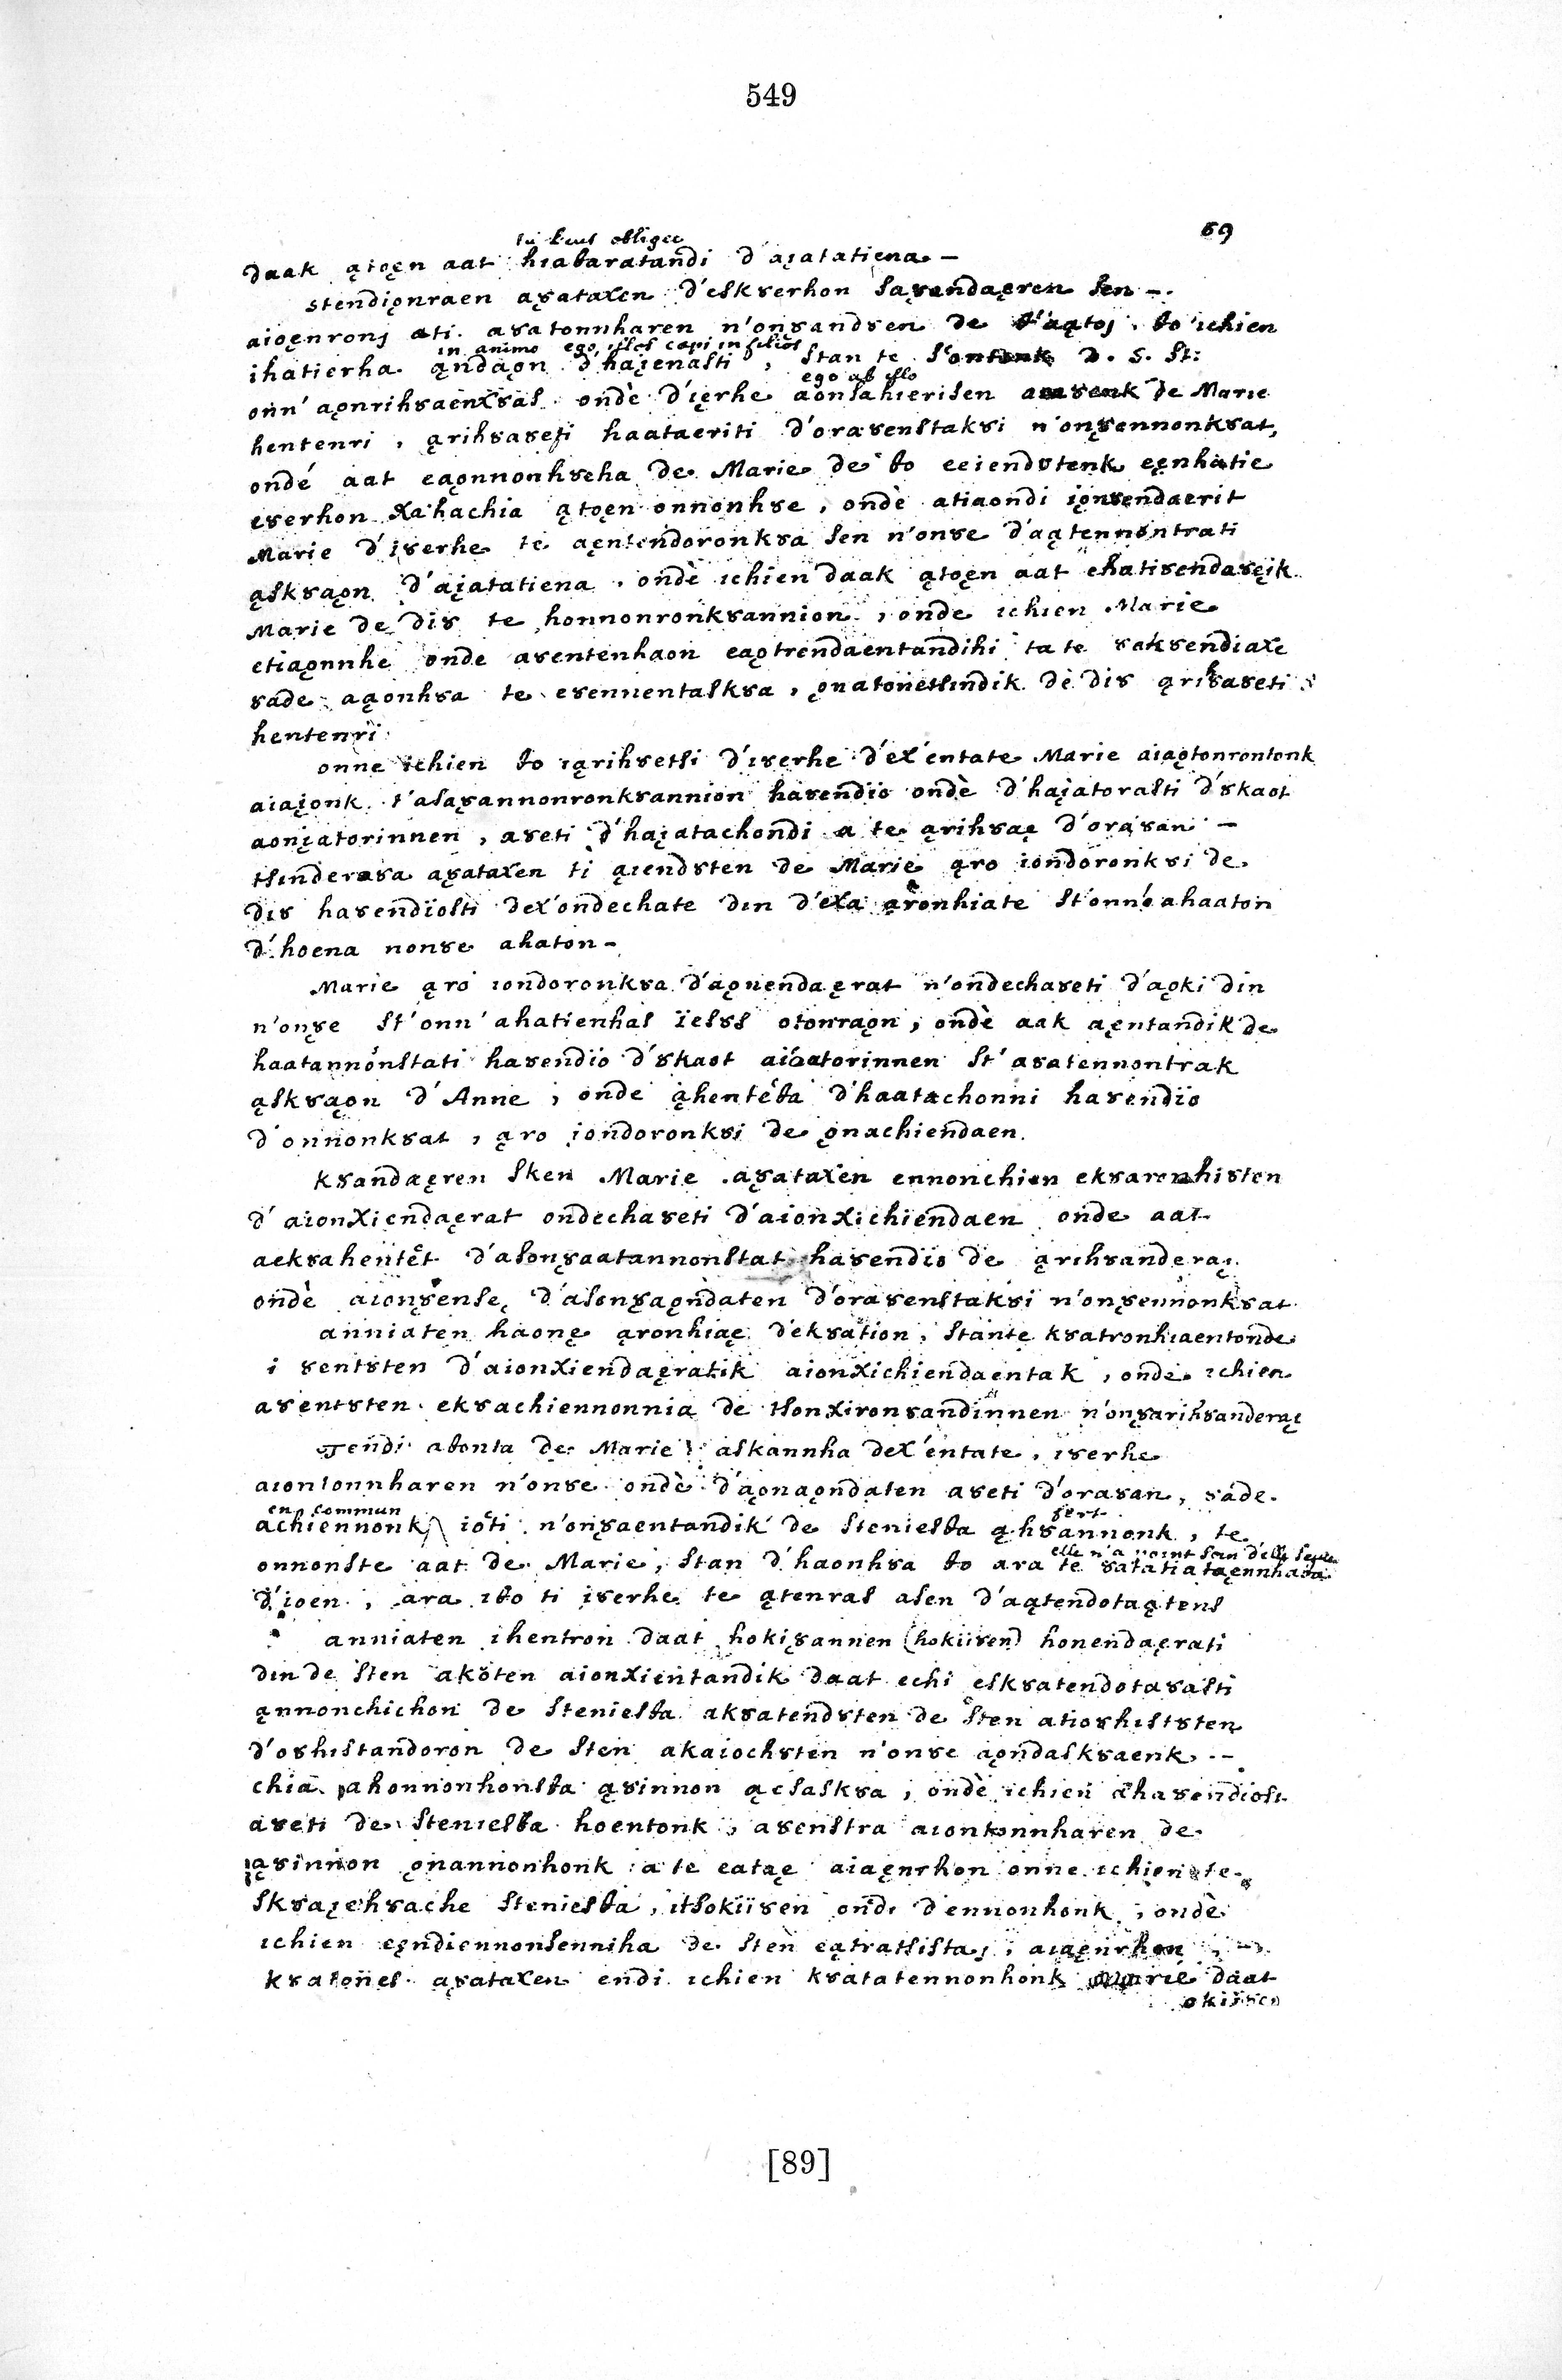 549
69
tu peus obligee
daak ątoęn aat hiaθaratandi d'aįatatiena –
stendiǫnraen aȣ̨ataxen d'eskȣerhon saȣendaęren sen –.
aioęnronj ati. aȣatonnharen n'onȣ̨andȣen de t'aątoj, θo ichien
in animo ego illos cepi in filios
ihatierha ąndaǫn d'haįenasti, stan te D. S. St:
ego ab illo
onn' aǫnrihȣaenxȣas ondè d'ięrhe aonsahierisen de Marie
hentenri, ąrihȣaȣeti haataeriti d'oraȣenstakȣi n'onȣ̨ennonkȣat,
ondé aat eaǫnnonhȣeha de Marie de θo eeiendȣtenk ęęnhatie
eȣerhon xa'hachia ątoęn onnonhȣe, ondè atiaondi iǫnȣendaerit
Marie d'iȣerhe te aęntendoronkȣa sen n'onȣe d'aątennontrati
ąskȣaǫn d'aįatatiena, ondè ichien daak ątoęn aat ehatiȣendaȣęik
Marie de diȣ te honnonronkȣannion, onde ichien Marie
etiaǫnnhe onde aȣentenhaon eaǫtrendaentandihi ta te sakȣendiaxe
ȣade aąonhȣa te eȣennentaskȣa, ǫnatonetsindik de diȣ ąrihȣaȣeti
hentenri
onne ichien θo iąrihȣetsi d'iȣerhe d'ex'entate Marie aiaǫtonrontonk
aiaįonk t'asaȣ̨annonronkȣannion haȣendio ondè d'haįatorasti d'skaot
aonįatorinnen, aȣeti d'haįatachondi a te ąrihȣaę d'oraȣan –
tsinderaȣa aȣ̨ataxen ti ąiendȣten de Marie ąro iondoronkȣi de
diȣ haȣendiosti dex'ondechate din d'exa ąronhiate st'onn'ahaaton
d'hoena nonȣe ahaton –
Marie ąro iondoronkȣa d'aǫnendaęrat n'ondechaȣeti d'aǫki din
n'onȣ̨e st'onn'ahatienhas Ïesȣs otonraǫn, ondè aak aęntandik de
haatannonstati haȣendio d'skaot aiøatorinnen st'aȣatennontrak
ąskȣaǫn d'Anne, onde ąhenteθa d'haatachonni haȣendio
d'onnonkȣat, ąro iondoronkȣi de ǫnachiendaen.
kȣandaęren sken Marie aȣ̨ataxen ennonchien ekȣaronhisten
d'aionxiendaęrat ondechaȣeti d'aionxichiendaen onde aat
aekȣahentet d'asonȣ̨aatannonstat haȣendio de ąrihȣanderaę
ondè aionȣ̨ense, d'asonȣ̨aǫndaten d'oraȣenstakȣi n'onȣ̨ennonkȣat
anniaten haonę ąronhiaę d'ekȣation, stante kȣatronhiaentonde
i ȣentȣten d'aionxiendaęratik aionxichiendaentak, onde ichien
aȣentȣten ekȣachiennonnia de tsonxironȣandinnen n'onȣ̨arihȣanderaę
Tendi aθonta de Marie askannha dex'entate, iȣerhe
aiontonnharen n'onȣe ondè d'aǫnaǫndaten aȣeti d'oraȣan, ȣade
en commun
fert
achiennonk ioti n'onȣ̨aentandik de steniesθa ąhȣannonk, te
elle n'a point soin d'elle seule
onnonste aat de Marie, stan d'haonhȣa θo ara te ȣatatiataęnnhaȣa
d'ioen, ara iθo ti iȣerhe te ątenras asen d'aątendotaątens
anniaten ihentron daat hokiȣ̨annen (hokiiȣen) honendaęrati
din de sten akoten aionxientandik daat echi eskȣatendotaȣasti
ąnnonchichon de steniesθa akȣatendȣten de sten atioȣhistȣten
d'oȣhistandoron de sten akaiochȣten n'onȣe aǫndaskȣaenk. –
chia ahonnonhonsθa ąȣinnon ąesaskȣa, ondè ichien ahaȣendiost
aȣeti de steniesθa hoentonk, aȣenstra aiontonnharen de
ąȣinnon ǫnannonhonk a te eataę aiaęnrhon onne ichien te
skȣaįehȣache steniesθa, itsokiiȣen ondi d'ennonhonk, ondè
ichien eęndiennonsenniha de sten eątratsistaj, aiaęnrhon
kȣatones aȣ̨ataxen endi ichien kȣatatennonhonk Marie daat
okiiȣen
[89]